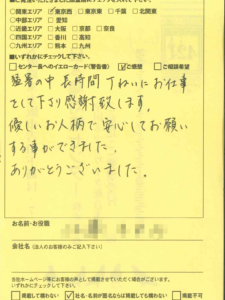 ○関東エリア □東京西 □東京東 □千葉 □北関東
○中部エリア □愛知
○近畿エリア □大阪 □京都 □奈良
○四国エリア □香川 □高知
○九州エリア □熊本 □九州
■いずれかにチェックして下さい。
□センター長へのイエローカード(警告書) ☑ご感想 □ご相談希望
猛暑の中 長時間 ていねいにお仕事
をして下さり感謝致します。
優しいお人柄で安心してお願い
する事ができました。
ありがとうございました。
お名前・お役職
会社名(法人のお客様のみご記入下さい)
当社ホームページ等にお客様の声として掲載させていただく場合がございます。
いずれかにチェックして下さい。
□掲載して構わない ☑社名・名前が匿名ならば掲載しても構わない □掲載不可